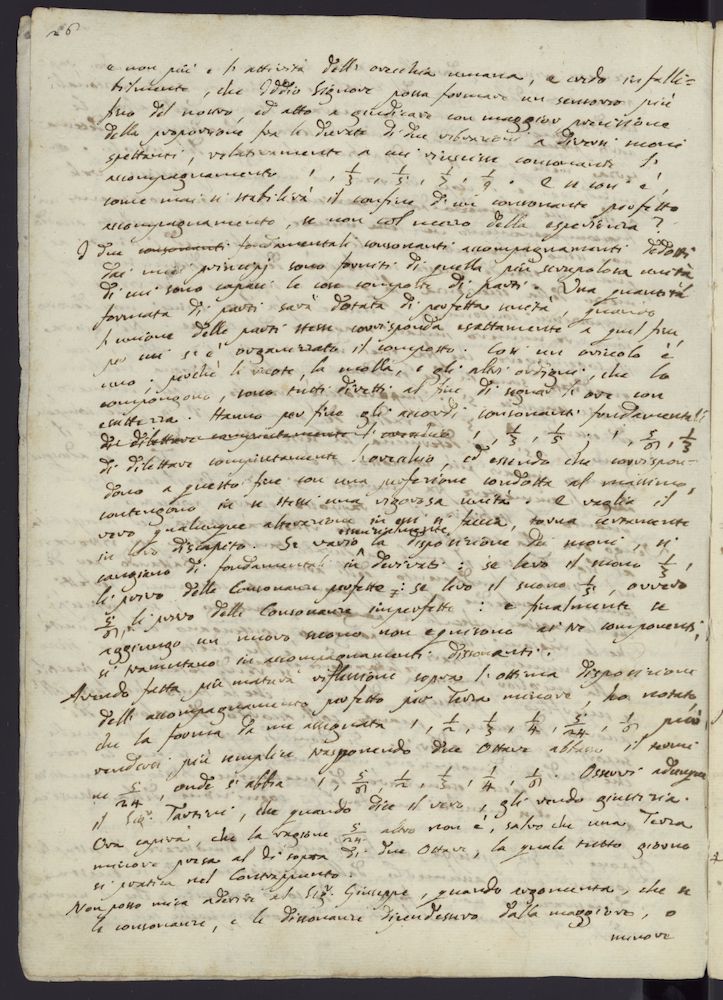 26
e non più e l'attività dell'orecchia umana, e credo infalli=
bilmente, che Iddio Signore possa formare un sensorio più
fino del nostro, ed atto a giudicare con maggior precisione
della proporzione fra le durate di due vibrazioni a diversi suoni
spettanti, relativamente a cui riuscisse consonante l'
accompagnamento 1, 1/3, 1/5, 1/7, 1/9. E se così è,
come mai si stabilirà il confine d'un consonante perfetto
accompagnamento, se non col mezzo della esperienza?
I due consonanti fondamentali consonanti accompagnamenti dedotti
dai miei principj sono forniti di quella più scrupolosa unità
di cui sono capaci le cose composte di parti. Una quantità
formata di parti sarà dotata di perfetta unità, quando
l'unione delle parti stesse corrisponda esattamente a quel fine,
per cui si è organizzato il composto. Così un oriuolo è
uno: poichè le ruote, la molla, e gli altri ordigni, che lo
compongono, sono tutti diretti al fine di segnar l'ore con
esattezza. Hanno per fine gli accordi consonanti fondamentali
di dilettare compiutamente l'orecchio 1, 1/3, 1/5; 1, 5/6, 1/3
di dilettare compiutamente l'orecchio, ed essendo che corrispon=
dono a questo fine con una perfezione condotta al massimo,
contengono in se stessi una rigorosa unità. E vaglia il
vero qualunque alterazione in essi si faccia, torna certamente
in loro discapito. Se vario essenzialmente la disposizione de' suoni, si
cangiano di fondamentali in derivati: se levo il suono 1/3,
li privo delle Consonanze perfette: se levo il suono 1/5, ovvero
5/6, li privo delle Consonanze imperfette: e finalmente se
aggiungo un nuovo suono non equisono ai tre componenti,
si tramutano in accompagnamenti dissonanti.
Avendo fatta più matura riflessione sopra l'ottima disposizione
dell'accompagnamento perfetto per Terza minore, ho notato,
che la forma da me assegnata 1, 1/2, 1/3, 1/4, 5/24, 1/6 può
rendersi più semplice trasponendo due Ottave abbasso il suono
5/24, onde si abbia 1, 5/6, 1/2, 1/3, 1/4, 1/6. Osservi adunque
il Sig.r Tartini, che quando dice il vero, gli rendo giustizia.
Ora capirà che la ragione 5/24 altro non è, salvo che una Terza
minore presa al di sopra di due Ottave, la quale tutto giorno
si pratica nel Contrappunto.
Non posso mica aderire al Sig.r Giuseppe, quando argomenta, che se
le consonanze, e le dissonanze dipendessero dalla maggiore, o
minore